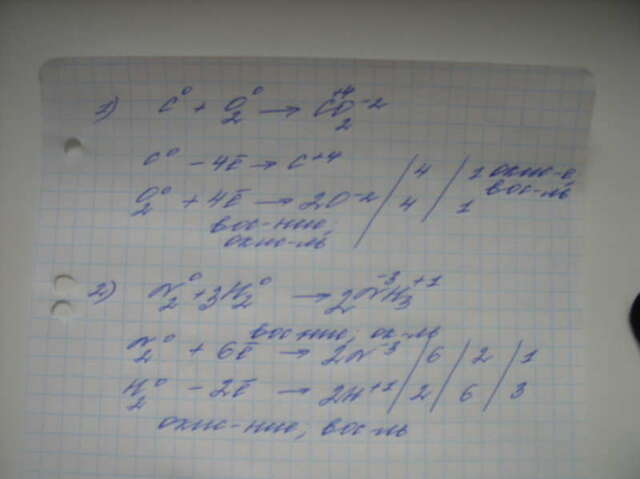 1) C⁰ + O₂⁰ → C⁺⁴O₂⁻²
C⁰ - 4ē → C⁺⁴ / 4 / 1 окис-е, вос-ль
O₂⁰ + 4ē → 2O⁻² / 4 / 1
вос-ние; окис-ль
2) N₂⁰ + 3H₂⁰ → 2N⁻³H₃⁺¹
вос-ние; ок-ль
N₂⁰ + 6ē → 2N⁻³ / 6 / 2 / 1
H₂⁰ - 2ē → 2H⁺¹ / 2 / 6 / 3
окис-ние, вос-ль